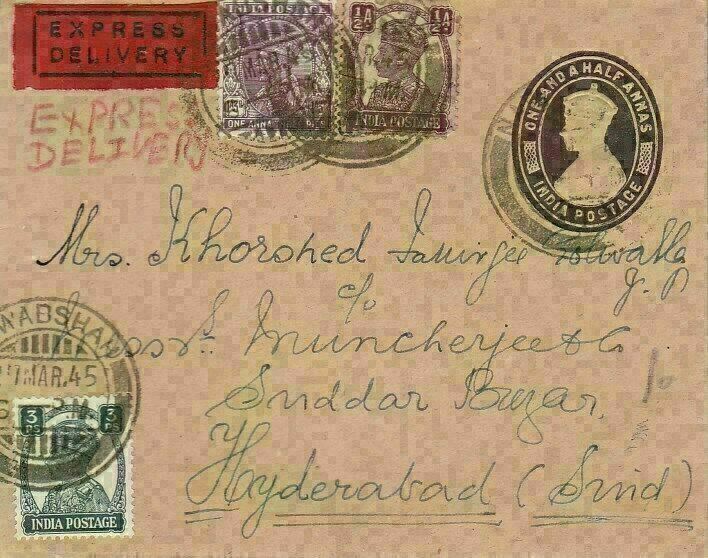 EXPRESS
DELIVERY
EXPRESS
DELIVERY
INDIA POSTAGE
ONE ANNA THREE PIES
½A ½A
INDIA POSTAGE
ONE AND A HALF ANNAS
INDIA POSTAGE
Mrs. Khorshed
J.P
c/o
Messrs. Muncherjee & Co
Suddar Bazar,
Hyderabad (Sind)
NAWABSHAH
MAR.45
3 Ps 3 Ps
INDIA POSTAGE